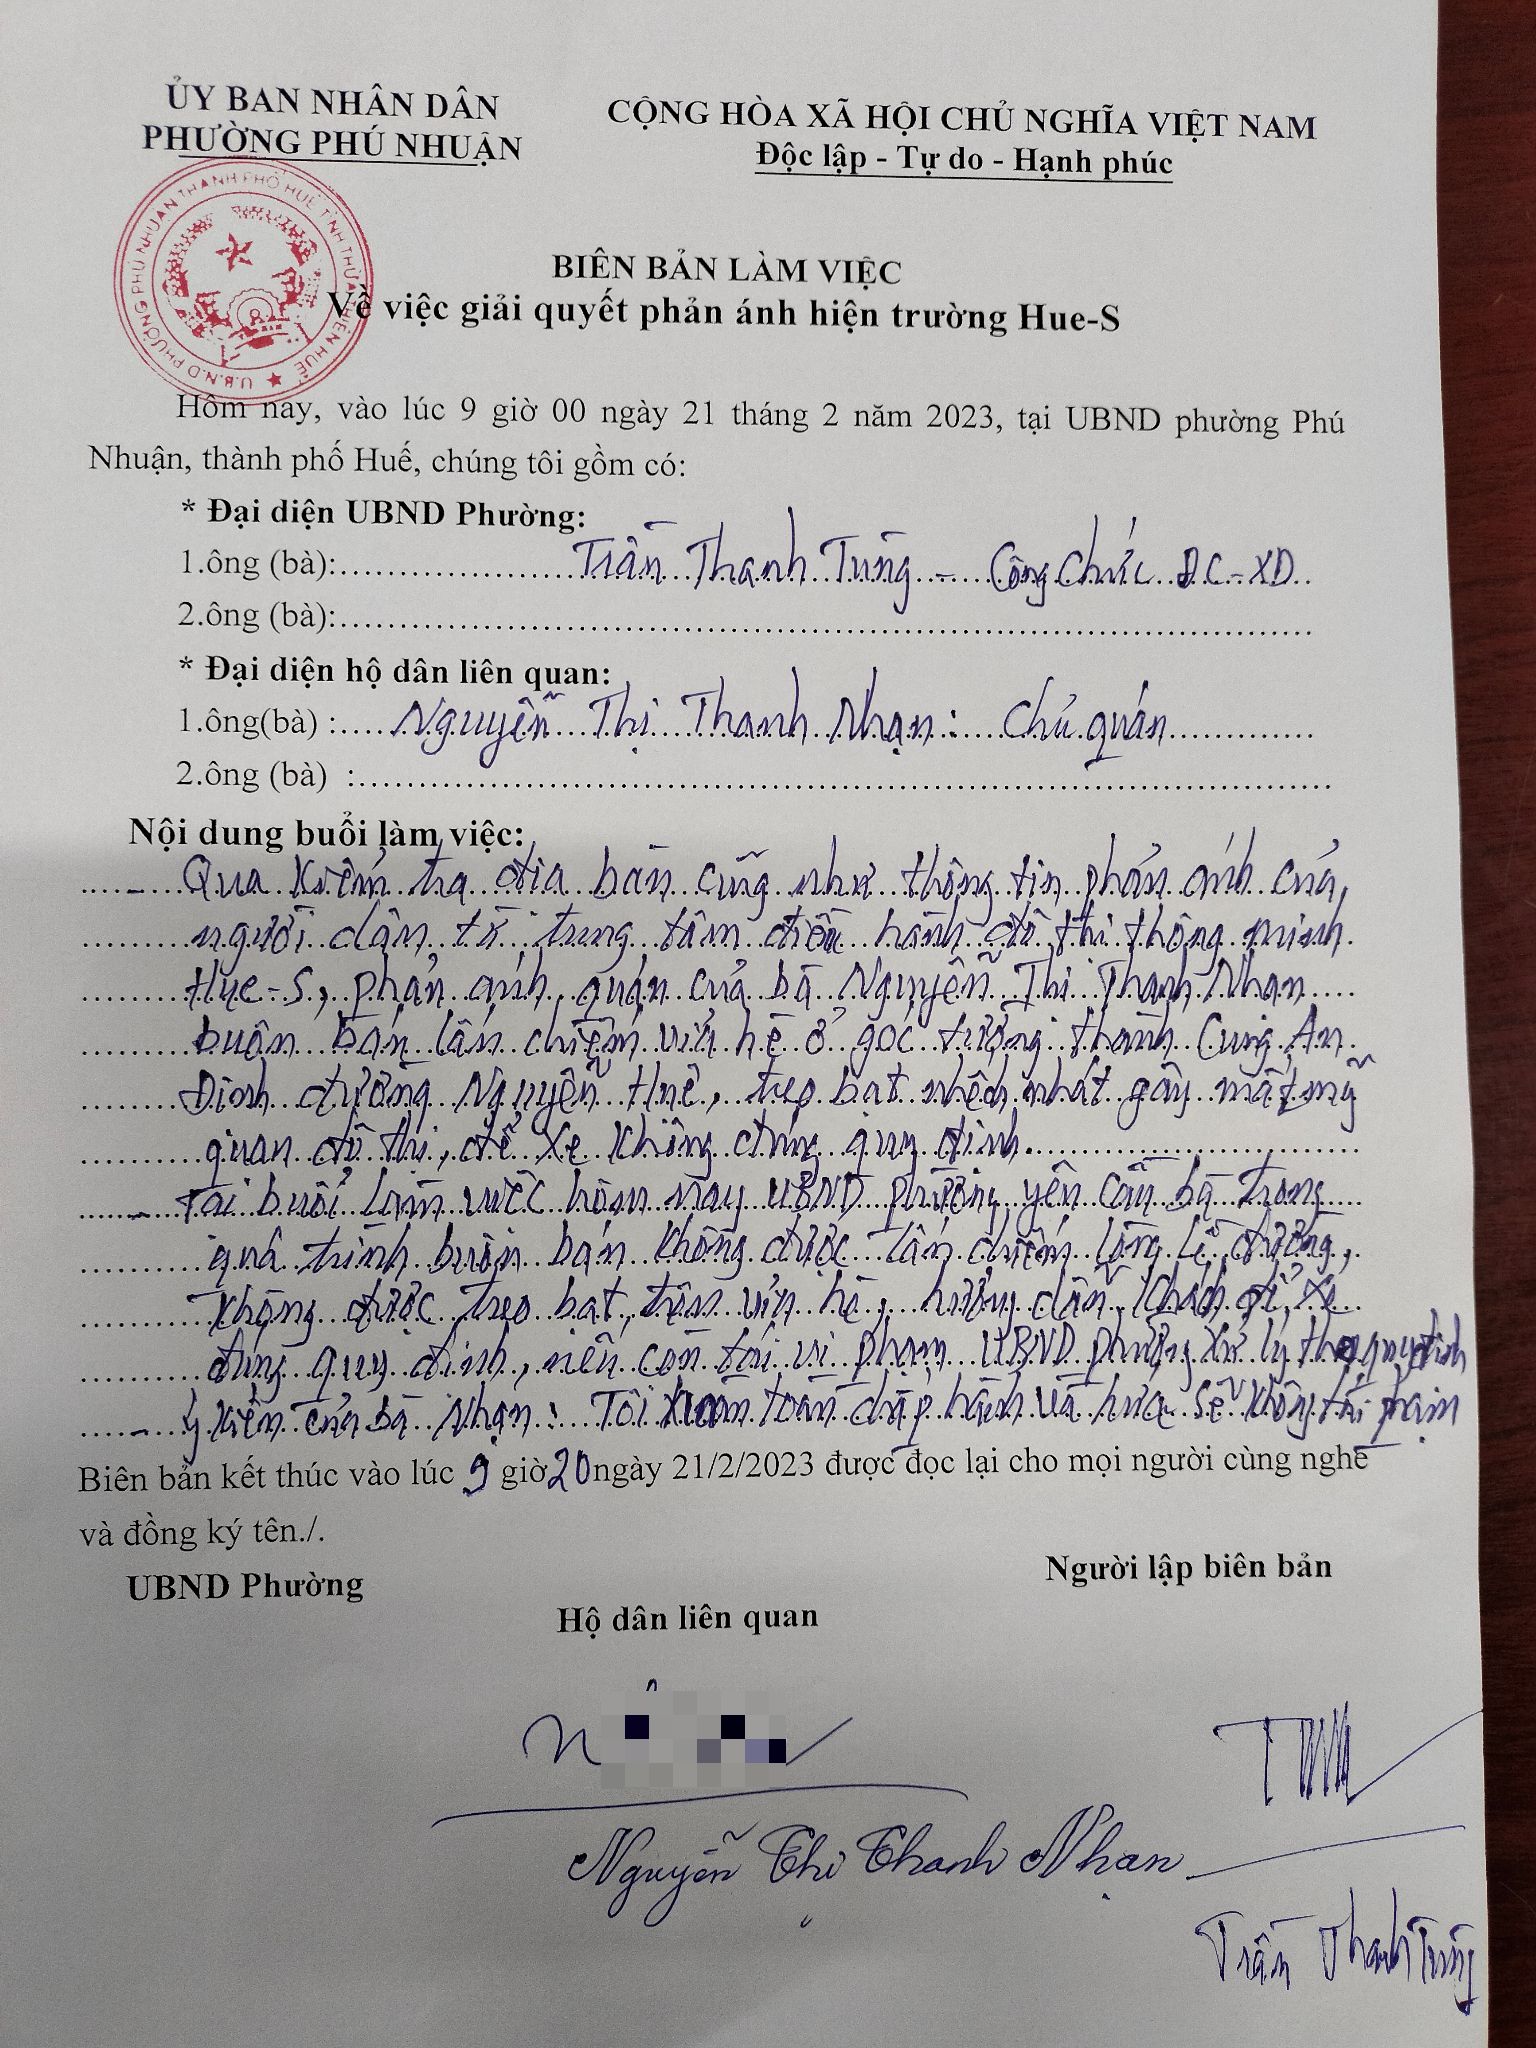 ỦY BAN NHÂN DÂN
PHƯỜNG PHÚ NHUẬN
CỘNG HÒA XÃ HỘI CHỦ NGHĨA VIỆT NAM
Độc lập - Tự do - Hạnh phúc
U.B.N.D PHƯỜNG PHÚ NHUẬN THÀNH PHỐ HUẾ TỈNH THỪA THIÊN HUẾ
BIÊN BẢN LÀM VIỆC
Về việc giải quyết phản ánh hiện trường Hue-S
Hôm nay, vào lúc 9 giờ 00 ngày 21 tháng 2 năm 2023, tại UBND phường Phú
Nhuận, thành phố Huế, chúng tôi gồm có:
* Đại diện UBND Phường:
1.ông (bà):.....Trần Thanh Tùng - Công Chức ĐC-XD..
2.ông (bà):.....
* Đại diện hộ dân liên quan:
1.ông(bà) :....Nguyễn Thị Thanh Nhạn: Chủ quán.....
2.ông (bà) :.....
Nội dung buổi làm việc:
- Qua kiểm tra địa bàn cũng như thông tin phản ánh của
người dân từ trung tâm điều hành đô thị thông minh
Hue-S, phản ánh quán của bà Nguyễn Thị Thanh Nhạn
buôn bán lấn chiếm vỉa hè ở góc tường thành Cung An
Định đường Nguyễn Huệ, treo bạt nhếch nhát gây mất mỹ
quan đô thị, để xe không đúng quy định.
- Tại buổi làm việc hôm nay UBND phường yêu cầu bà trong
quá trình buôn bán không được lấn chiếm lòng lề đường,
không được treo bạt trên vỉa hè, hướng dẫn khách để xe
đúng quy định, nếu còn tái vi phạm UBND phường xử lý theo quy định
- Ý kiến của bà Nhạn: Tôi hoàn toàn chấp hành và hứa sẽ không tái phạm
Biên bản kết thúc vào lúc 9 giờ 20 ngày 21/2/2023 được đọc lại cho mọi người cùng nghe
và đồng ký tên./.
UBND Phường
Hộ dân liên quan
Người lập biên bản
Nguyễn Thị Thanh Nhạn
Trần Thanh Tùng